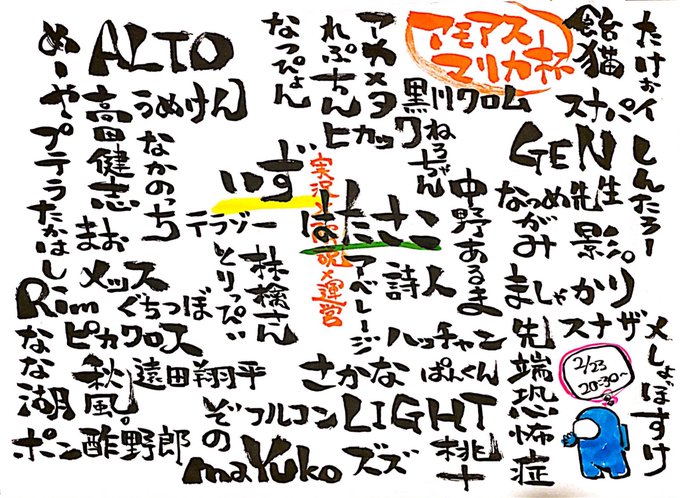 アモアスー
マリカ杯
たけぉイ
しんたろー
メしょぼすけ
飴猫
スナパ
GEN
なつめ先生
ながみ
影リ
ましゃかり
スナザ
先端恐怖症
アカメタ
れぷちん
なっぴょん
ヒカック
黒川クロム
ねろちゃん
中野あるま
ALTO
うめけん
めーや
高田健志
なかのっち
プテラたかはし
まお
いず
はたさこ
実況と解説×運営
テラゾー
とりっぴぃ
林檎さん
アベレージ
詩人
メッス
Rim
ぐちつぼ
ピカクロス
ななな湖
秋風。
遠田翔平
ポン酢野郎
ぞの
フルコン
LIGHT
さかな
ハッチャン
ぱんくん
maYuko
ズズ
桃十
2/23
20:30~